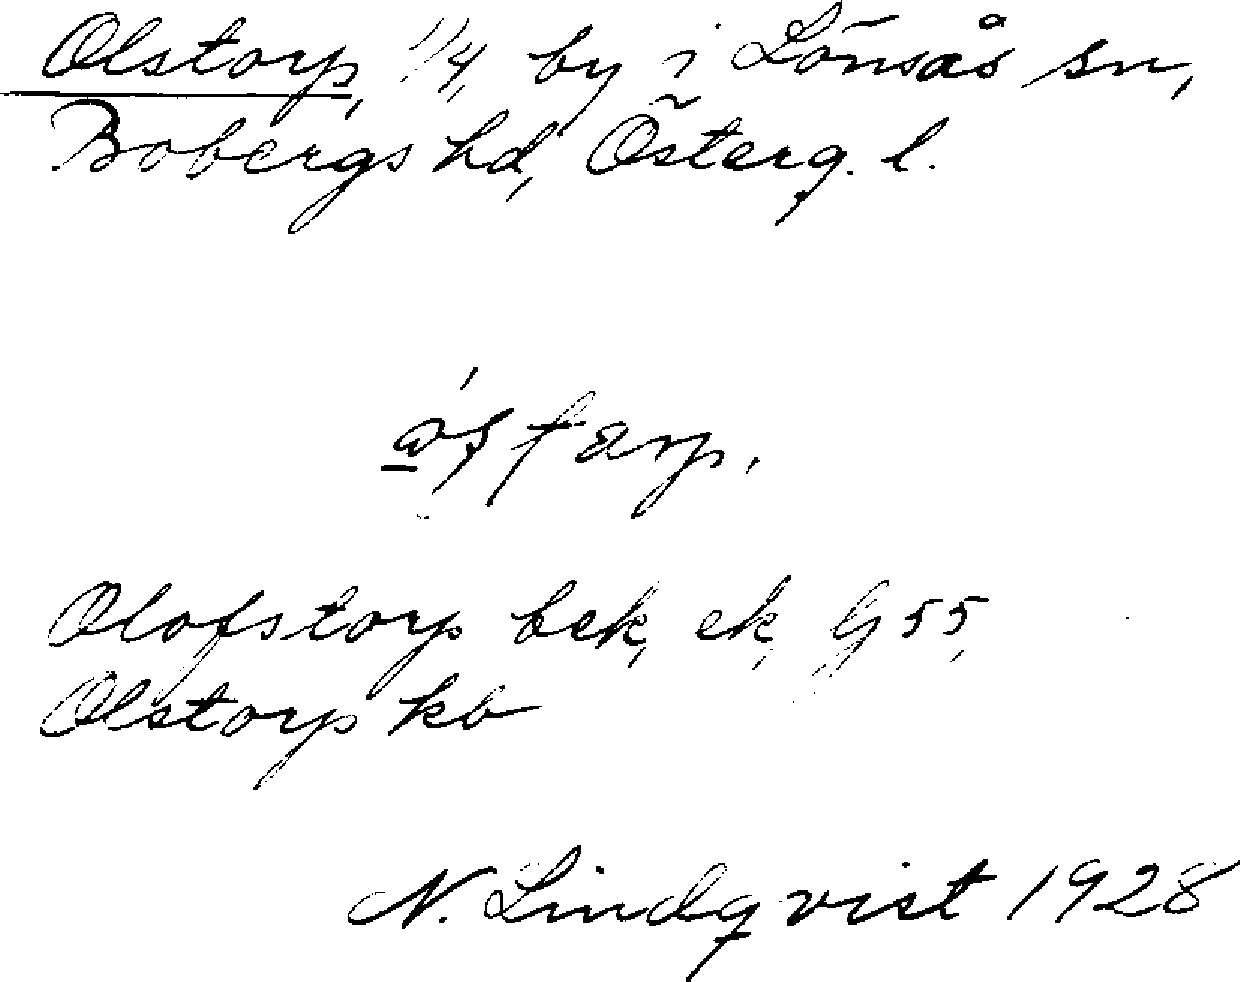 Olstorp, 1/4, by i Lönsås sn,
Bobergs hd, Österg. l.
Olofstorp bek, ek, G 55,
Olstorp kb
N. Lindqvist 1928